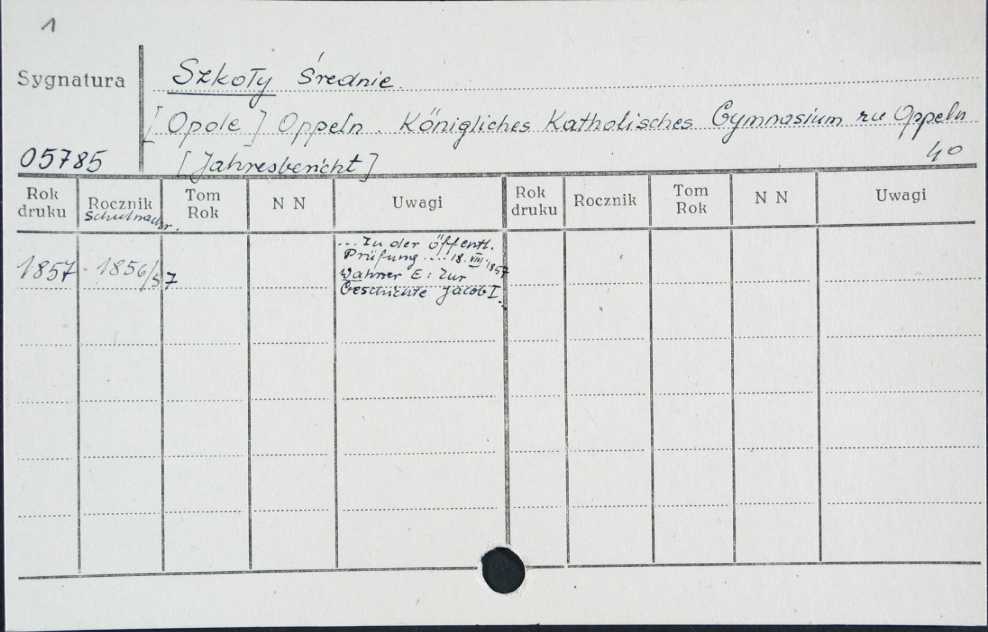 1
Sygnatura
Szkoły Średnie.
[Opole] Oppeln. Königliches Katholisches Gymnasium zu Oppeln
05785
[Jahresbericht]
40
Rok druku
Rocznik
Schulnachr.
Tom Rok
N N
Uwagi
Rok druku
Rocznik
Tom Rok
N N
Uwagi
1857. 1856/57
... Zu der öffentl.
Prüfung .... 18. VIII. 1857
Wahner E: Zur
Geschichte Jacob I.